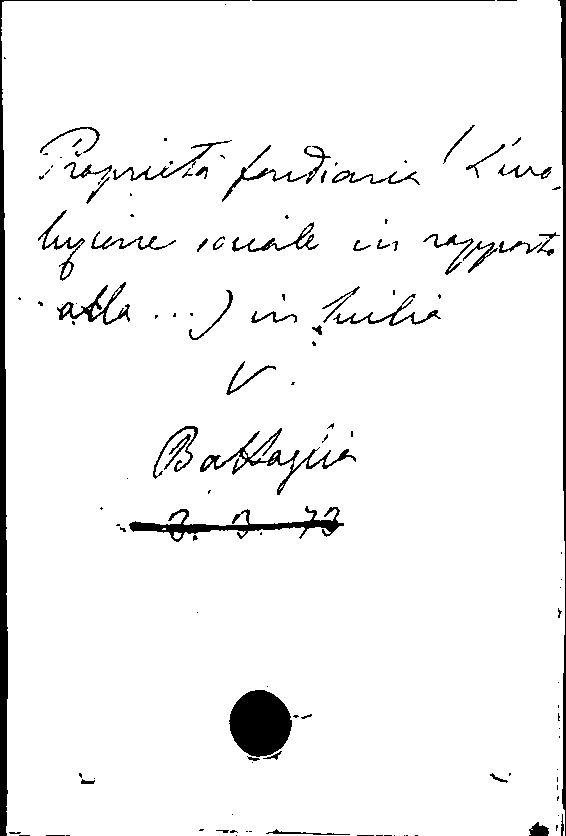 Proprietà fondiaria (L'evo-
luzione sociale in rapporto
alla ...) in Sicilia
V.
Battaglia
3. 3. 73